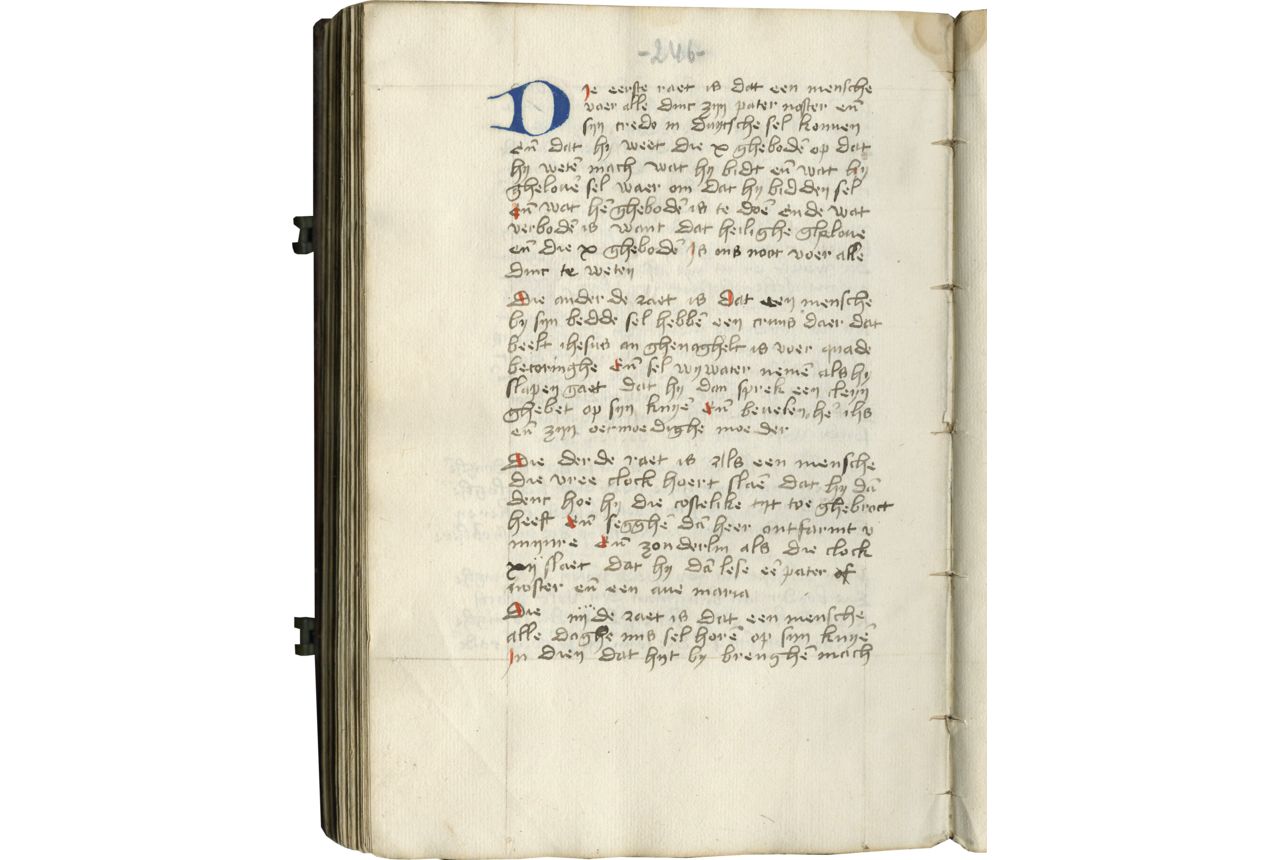 -246-
Die eerste raet is dat een mensche
voer alle dinc zijn pater noster en̄
sijn credo in duytsche sel konnen
en̄ dat hij weet die x ghebodē op dat
hij wetē mach wat hij bidt en̄ wat hij
ghelouē sel waer om dat hij bidden sel
En̄ wat hē ghebodē is te doē ende wat
verbodē is want dat heilighe gheloue
en̄ die x ghebodē Is ons noot voer alle
dinc te weten
Die anderde raet is Dat een mensche
by sijn bedde sel hebbē een cruus daer dat
beelt ihesus an ghenaghelt is voer quade
betoringhe En̄ sel wijwater nemē als hij
slapen gaet dat hij dan sprek een cleyn
ghebet op sijn knyē En̄ beuelen hē ihs
en̄ zijn oetmoedighe moeder
Die derde raet is Als een mensche
die vree clock hoert slaē dat hij dā
denc hoe hij die costelike tijt toe ghebroct
heeft En̄ segghē dā heer ontfarmt v
mijnre En̄ zonderlin als die clock
xij slaet dat hij dā lese eē pater of
noster en̄ een aue maria
Die iiijde raet is dat een mensche
alle daghe mis sel horē op sijn knyē
In dien dat hijt by brenghē mach